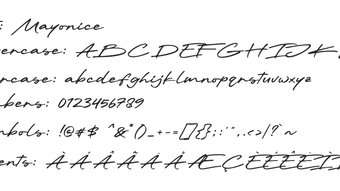 : Mayonice
ercase: ABCDEFGHIJK
ercase: abcdefghijklmnopqrstuvwxyz
bers: 0123456789
bols: !@#$ ^&*()_+-=[]{};:'",.<>/?`~
ents: ÀÁÂÃÄÅÆÇÈÉÊËÌÍ